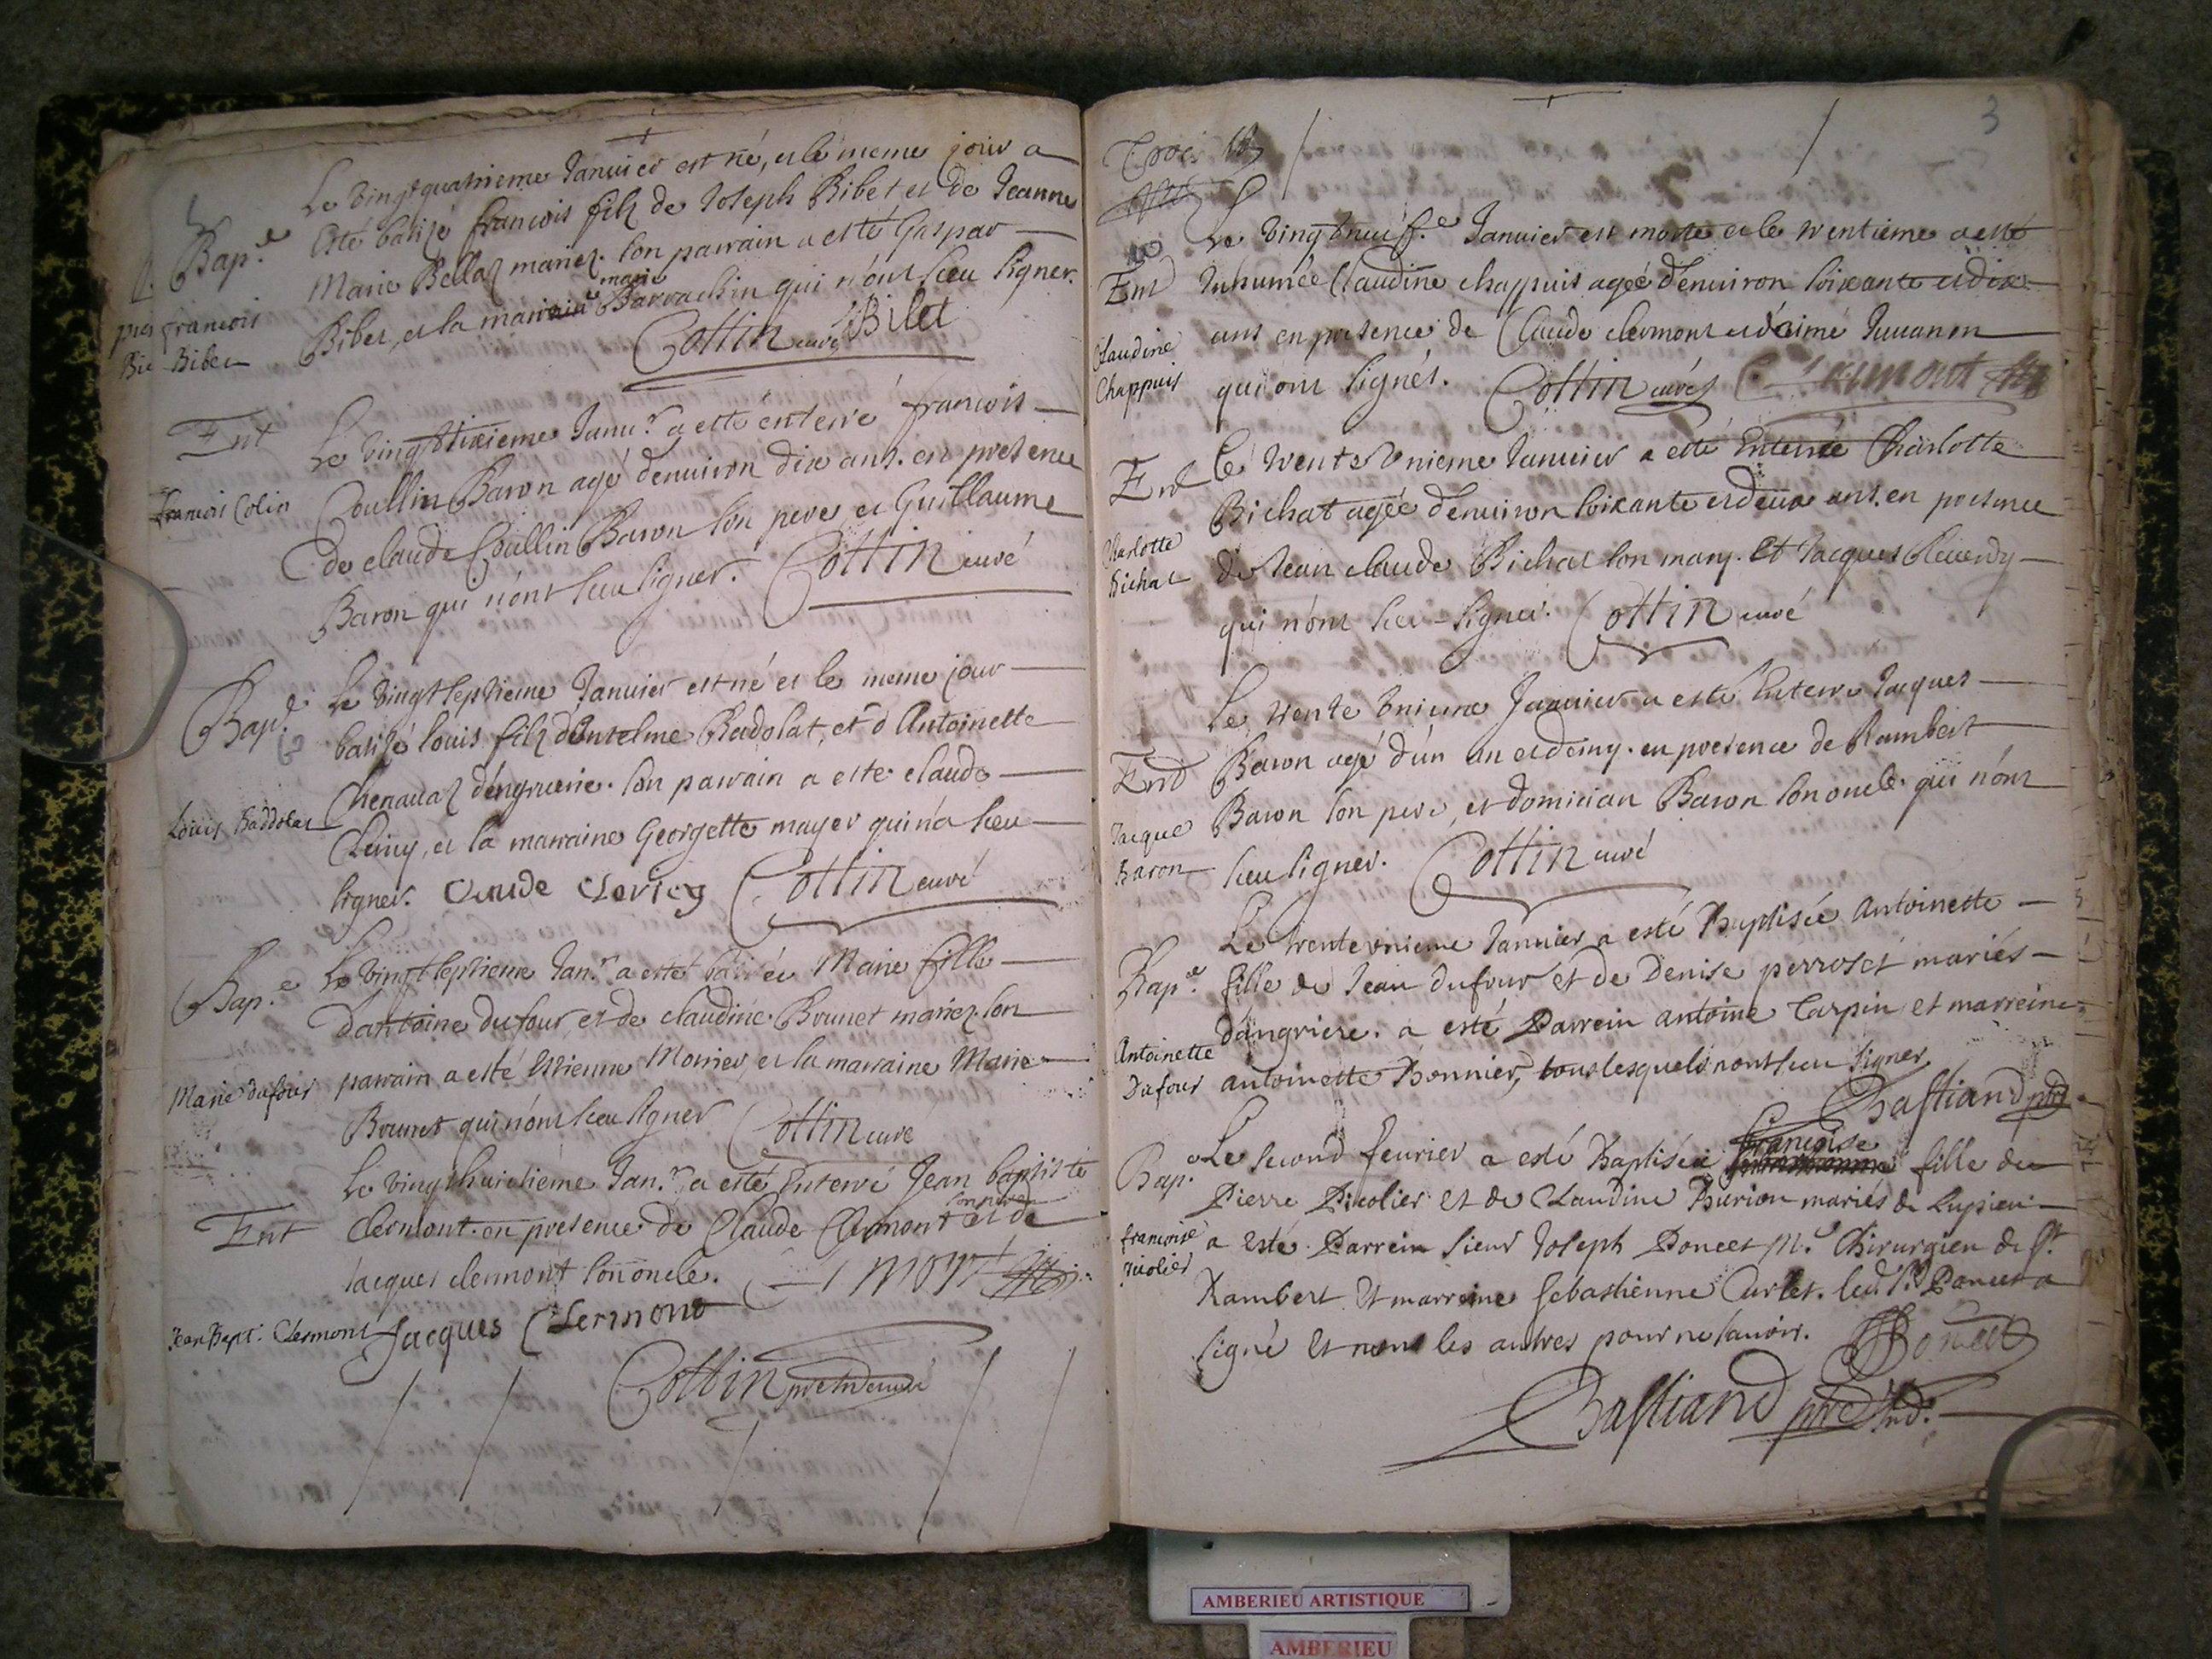 Le vingt quatrieme Janvier est né, et le meme jour a
Bap.e esté batisé francois filz de Joseph Bibet et de Jeanne
Marie Bellaz mariez. son parrain a esté Gaspar
francois Bibet
Bibet, et la marraine marie Barrachin qui n'ont sceu signer.
Cottin curé Bibet
Ent Le vingt sixieme Janv.r a esté enterré francois
francois Colin Coullin Baron agé denviron dix ans. en presence
de claude Coullin Baron son pere et Guillaume
Baron qui n'ont sceu signer. Cottin curé
Bap.e Le vingt septieme Janvier est né et le meme jour
batisé louis filz d'Anselme Badolat, et d'Antoinette
Chenavaz dengrierie. son parrain a este claude
Louis Baddolat
Clericy, et la marraine Georgette mayer qui n'a sceu
signer. Claude Clericy Cottin curé
Bap.e Le vingt septieme Jan.r a esté batisée Marie fille
Dantoine dufour, et de claudine Brunet mariez. son
Marie dufour parrain a esté Estienne Monier, et la marraine Marie
Brunet qui n'ont sceu signer Cottin curé
Le vingt huictieme Jan.r a esté Enterré Jean baptiste
Ent Clermont en presence de Claude Clermont son pere et de
Jacques clermont son oncle.
Jean Bapt. Clermont Jacques Clermont
Cottin
3
Le vingt neuf.e Janvier est morte et le trentieme a esté
Ent Inhumée Claudine chappuis agée d'environ soixante et dix
Claudine Chappuis
ans en presence de Claude clermont et d'aimé Juvanon
qui ont signés. Cottin curé Clermont
Ent Le trente Unieme Janvier a esté Enterrée Charlotte
Bichat agée d'environ soixante et deux ans. en presence
Charlotte Bichat
de Jean claude Bichat son mary. Et Jacques
qui n'ont sceu signer. Cottin curé
Le trente Unieme Janvier a esté Enterré Jacques
Ent Baron agé d'un an et demy. en presence de Rambert
Jacque Baron
Baron son pere, et domician Baron son oncle. qui n'ont
sceu signer. Cottin curé
Le trente vnieme Janvier a esté Baptisée Antoinette
Bap.e fille de Jean dufour et de Denise perroset mariés
Antoinette Dufour
dangriere. a esté Parrein antoine Tarpin et marreine
antoinette Bonnier, tous lesquels n'ont sceu signer
Bastiand pbr
Bap.e Le second feurier a esté Baptisée Françoise fille de
Pierre Picolier et de Claudine Burion mariés de Lupieu
françoise Picolier
a esté Parrein sieur Joseph Poncet M.e Chirurgien de S.t
Rambert Et marreine Sebastienne Curlet. led. S.r Poncet a
signé Et non les autres pour ne sauoir. Poncet
Bastiand
AMBERIEU ARTISTIQUE
AMBERIEU